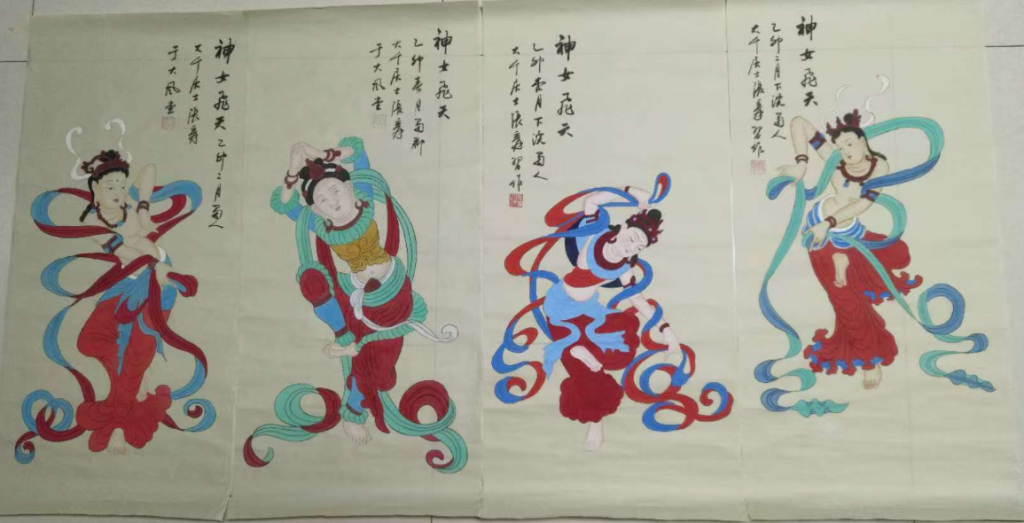 神女飛天
乙卯二月下浣蜀人
大千居士張爰習作
神女飛天
乙卯春月下浣蜀人
大千居士張爰習作
神女飛天
乙卯春月蜀郡
大千居士張爰
于大風堂
神女飛天 乙卯二月蜀人
大千居士張爰
于大風堂